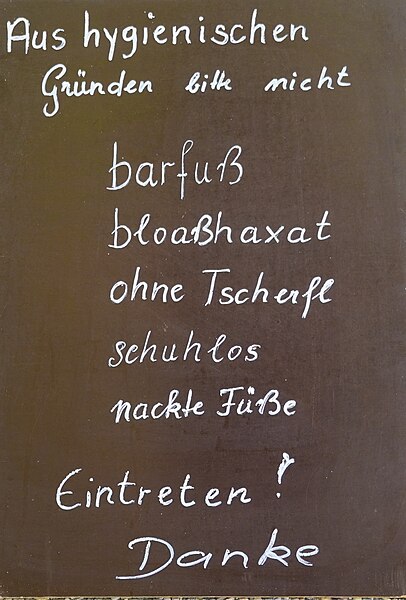 Aus hygienischen
Gründen bitte nicht
barfuß
bloaßhaxat
ohne Tscherfl
schuhlos
nackte Füße
Eintreten!
Danke